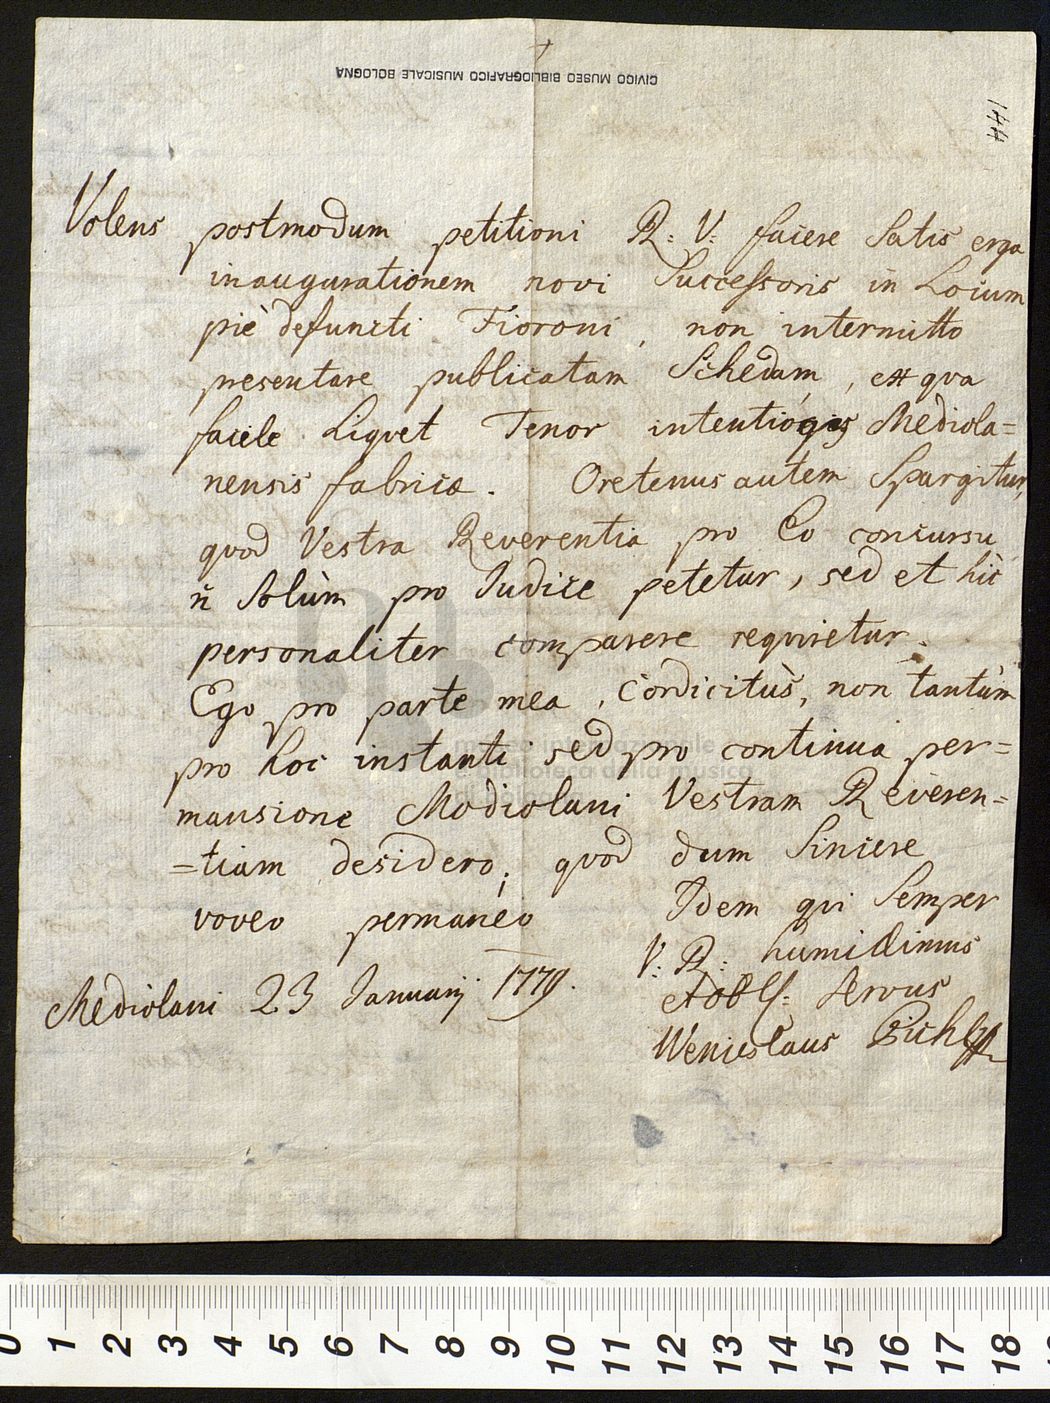 CIVICO MUSEO BIBLIOGRAFICO MUSICALE BOLOGNA
144
Volens postmodum petitioni R: V: facere Satis erga
inaugurationem novi Successoris in Locum
piè defuncti Fioroni, non intermitto
presentare publicatam Schedam, ex qua
facile Liquet Tenor intentionis Mediola=
nensis fabricæ. Oretenus autem Spargitur,
quod Vestra Reverentia pro Eo concursu
ñ Solùm pro Judice petetur, sed et hìc
personaliter comparere requiretur.
Ego pro parte mea, Cordicitùs, non tantùm
pro hoc instanti sed pro continua per=
mansione Mediolani Vestram Reveren=
=tiam desidero; quod dum Sincere
voveo permaneo Idem qui Semper
V: R: humillimus
et obls: servus
Mediolani 23 Januarij 1779.
Wenceslaus Pichl
museo internazionale
e biblioteca della musica
di bologna
0 1 2 3 4 5 6 7 8 9 10 11 12 13 14 15 16 17 18